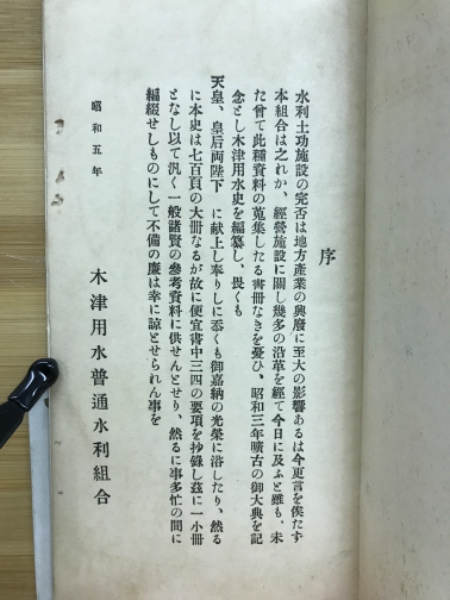 序
水利土功施設の完否は地方產業の興廢に至大の影響あるは今更言を俟たす
本組合は之れか、經營施設に關し幾多の沿革を經て今日に及ふと雖も、未
た曾て此種資料の蒐集したる書冊なきを憂ひ、昭和三年曠古の御大典を記
念とし木津用水史を編纂し、畏くも
天皇、皇后両陛下 に献上し奉りしに忝くも御嘉納の光榮に浴したり、然る
に本史は七百頁の大冊なるが故に便宜書中三四の要項を抄錄し玆に一小冊
となし以て汎く一般諸賢の參考資料に供せんとせり、然るに事多忙の間に
編綴せしものにして不備の廉は幸に諒とせられん事を
昭和五年
木津用水普通水利組合